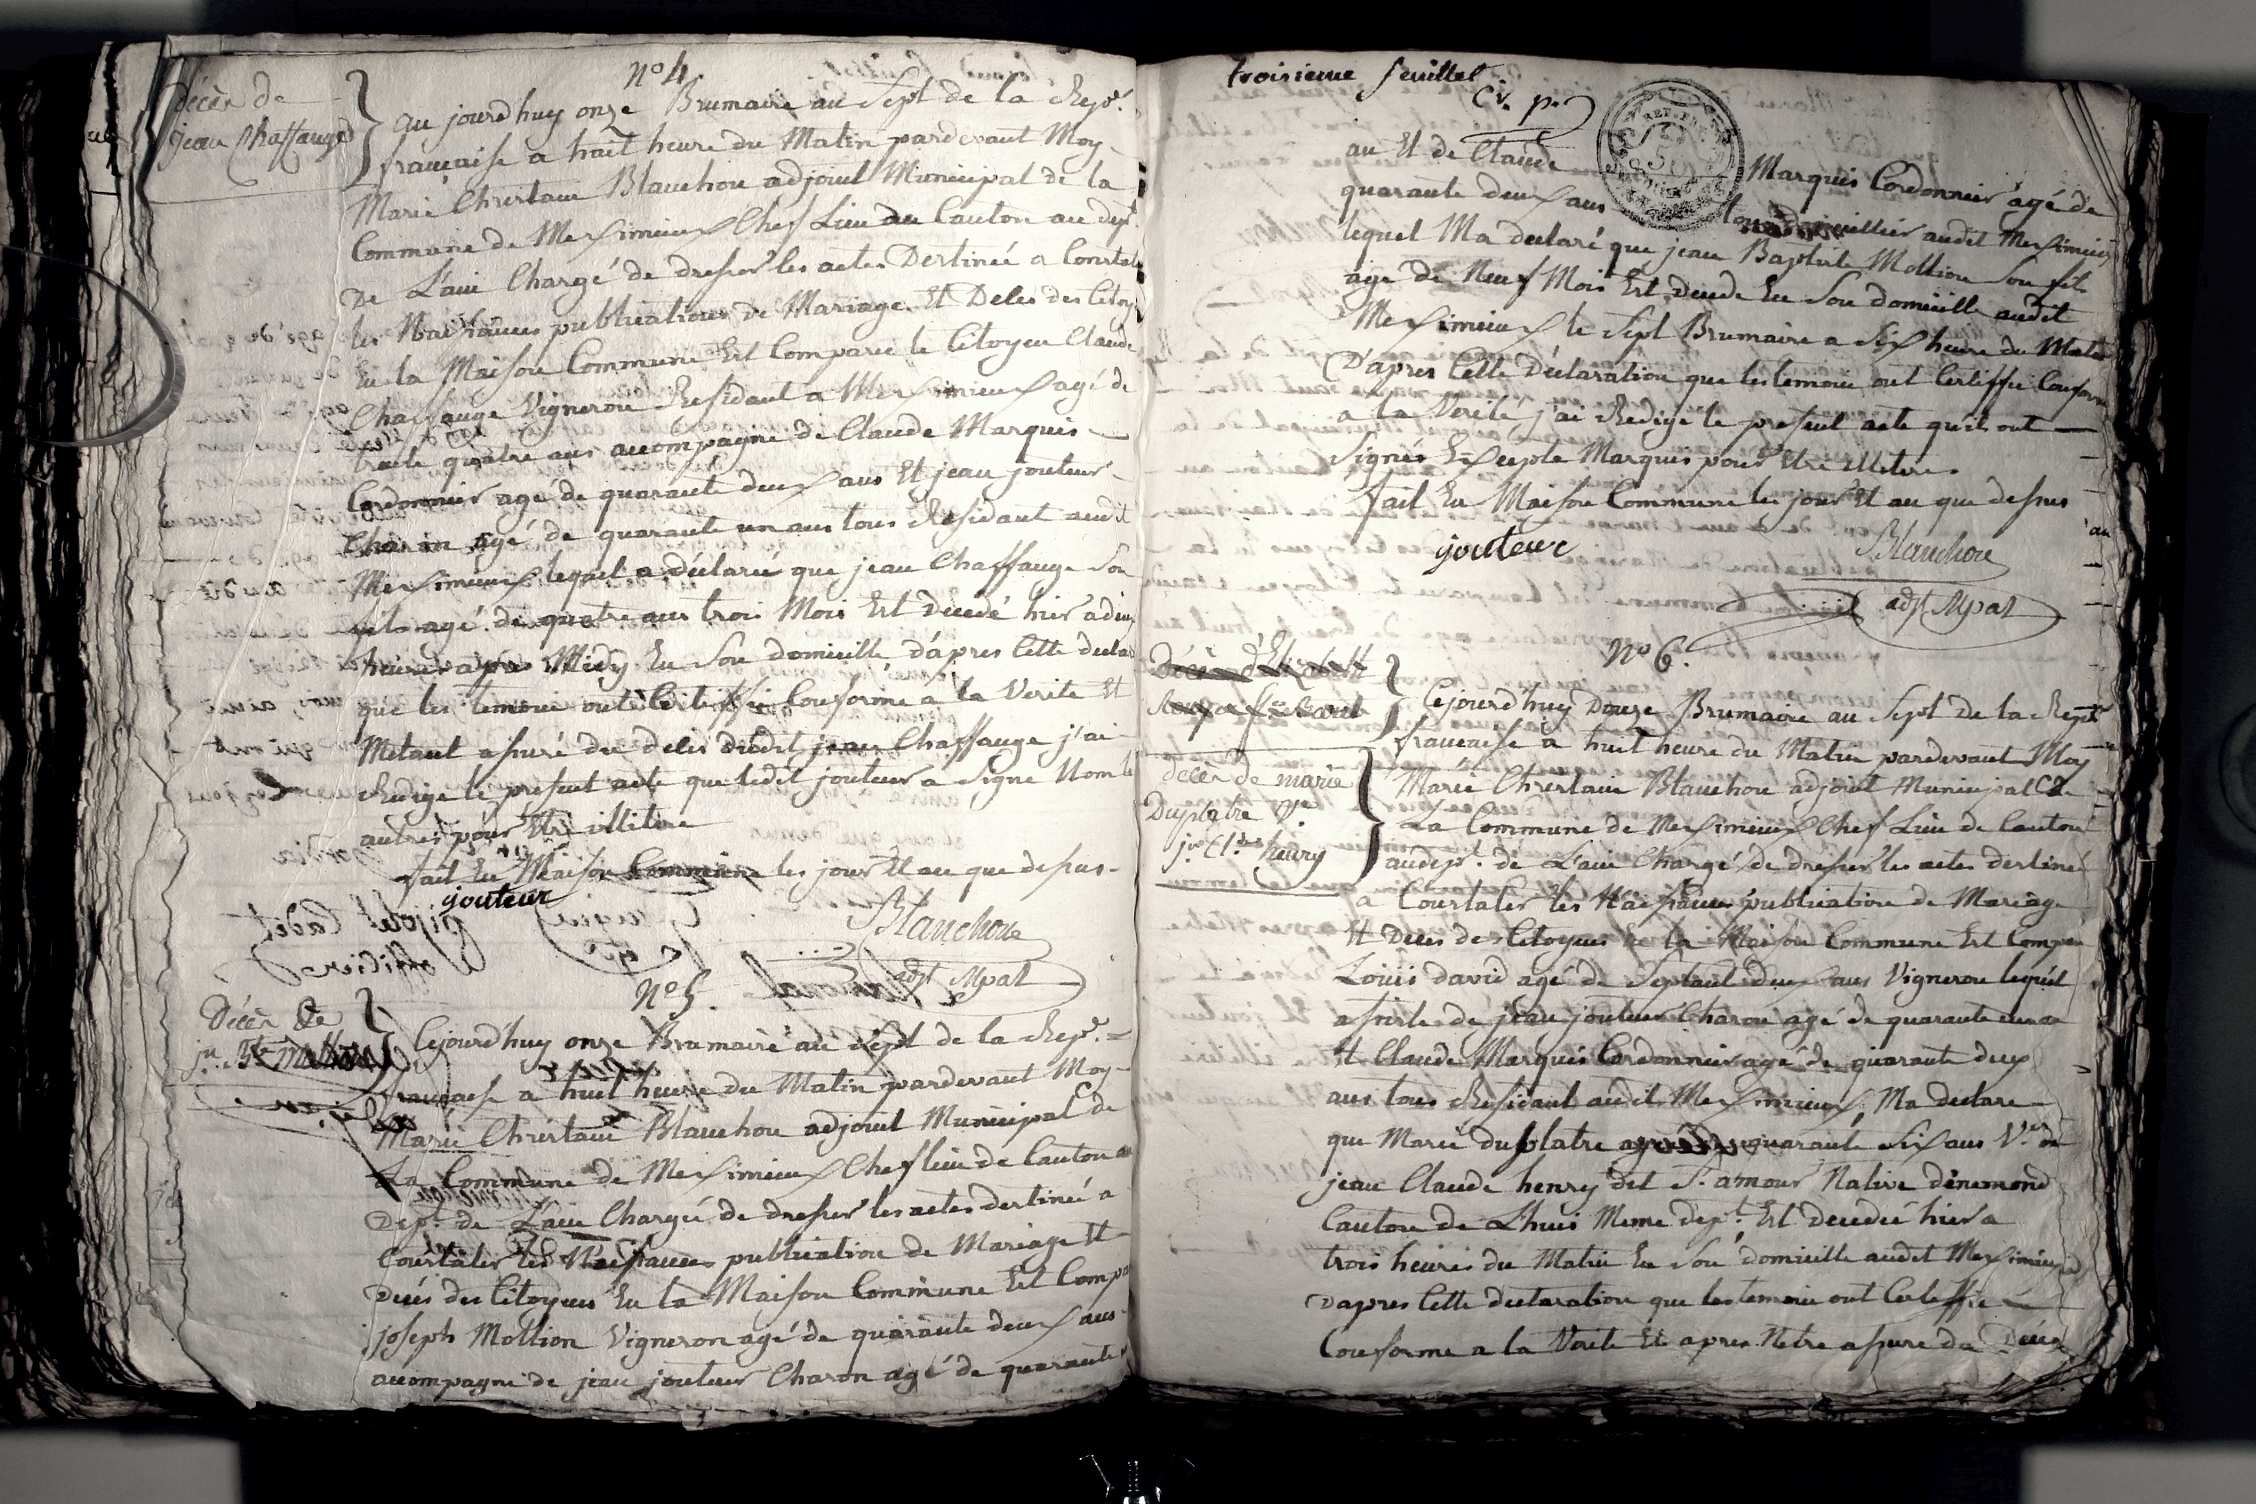 N° 4
décès de
jean Chaffange
au jourd'huy onze Brumaire au Sept de la Rep.
francaise a huit heure du Matin pardevant Moy
Marie Chrestain Blanchon adjoint Municipal de la
Commune de Meximieux Chef Lieu du Canton au dept.
De L'ain Chargé de dresser les actes Destinée a Constat
les Naissances publications de Mariage Et Deces des Citoy
En la Maison Commune Est Comparu le Citoyen Claude
Chaffange Vigneron Residant a Meximieux agé de
trente quatre ans accompagné de Claude Marquis
Cordonnier agé de quarante deux ans Et jean jouteur
Charon agé de quarante un ans tous Residant audit
Meximieux lequel a déclaré que jean Chaffange Son
fils agé de quatre ans trois Mois Est Décedé hier a dix
heures apres Midy En Son domicille d'apres Cette declar
que les temoin ont Certiffié Conforme a la Verite Et
Metant assuré du deces dudit jean Chaffange j'ai
Redige le present acte que ledit jouteur a Signé Non l
autres pour Etre illitere
fait En Maison Commune les jour Et an que dessus
jouteur
Blanchon
adjt Mpal
N° 5.
Décès de
jn. Bte Mollion
Cejourd'huy onze Brumaire au Sept de la Rep.
francaise a huit heure du Matin pardevant Moy
Marie Chrestain Blanchon adjoint Municipal de
La Commune de Meximieux Chef lieu de Canton au
Dept. de L'ain Chargé de dresser les actes destinée a
Constater les Naissances publication de Mariage Et
Décés des Citoyens En la Maison Commune Est Compa
joseph Mollion Vigneron agé de quarante deux ans
accompagné de jean jouteur Charon agé de quarante
troisieme feuillet
an Et de Claude Marquis Cordonnier agé de
quarante deux ans tous domicillier audit Meximieux
lequel Ma declaré que jean Baptiste Mollion Son fils
agé de Neuf Mois Est decede En Son domicille audit
Meximieux le Sept Brumaire a Six heure du Matin
D'apres Cette Déclaration que les temoin ont Certiffié Conforme
a la Verité, j'ai Redige le present acte qu'ils ont
Signés Excepte Marquis pour Etre illitere
fait En Maison Commune les jour Et an que dessus
jouteur
Blanchon
adjt Mpal
N° 6.
Cejourd'huy Douze Brumaire au Sept de la Rep
francaise a huit heure du Matin pardevant Moy
decès de marie
Duplatre Ve.
jn. Cl.de henry
Marie Chrestain Blanchon adjoint Municipal de
La Commune de Meximieux Chef Lieu de Canton
audept. de L'ain Chargé de dresser les actes destiné
a Constater les Naissances publication de Mariage
Et Deces des Citoyens En la Maison Commune Est Compa
Louis david agé de Septant deux ans Vigneron lequel
assisté de jean jouteur Charon agé de quarante un an
Et Claude Marquis Cordonnier agé de quarante deux
ans tous Residant audit Meximieux, Ma declare
que Marie duplatre agée de quarante Six ans Ve. de
jean Claude henry dit St. amour Native dénemond
Canton de Lhuis Meme dept. Est decedée hier a
trois heures du Matin En Son domicille audit Meximieux
D'apres Cette declaration que les temoin ont Certiffie
Conforme a la Verite Et apres Metre assuré du Décès